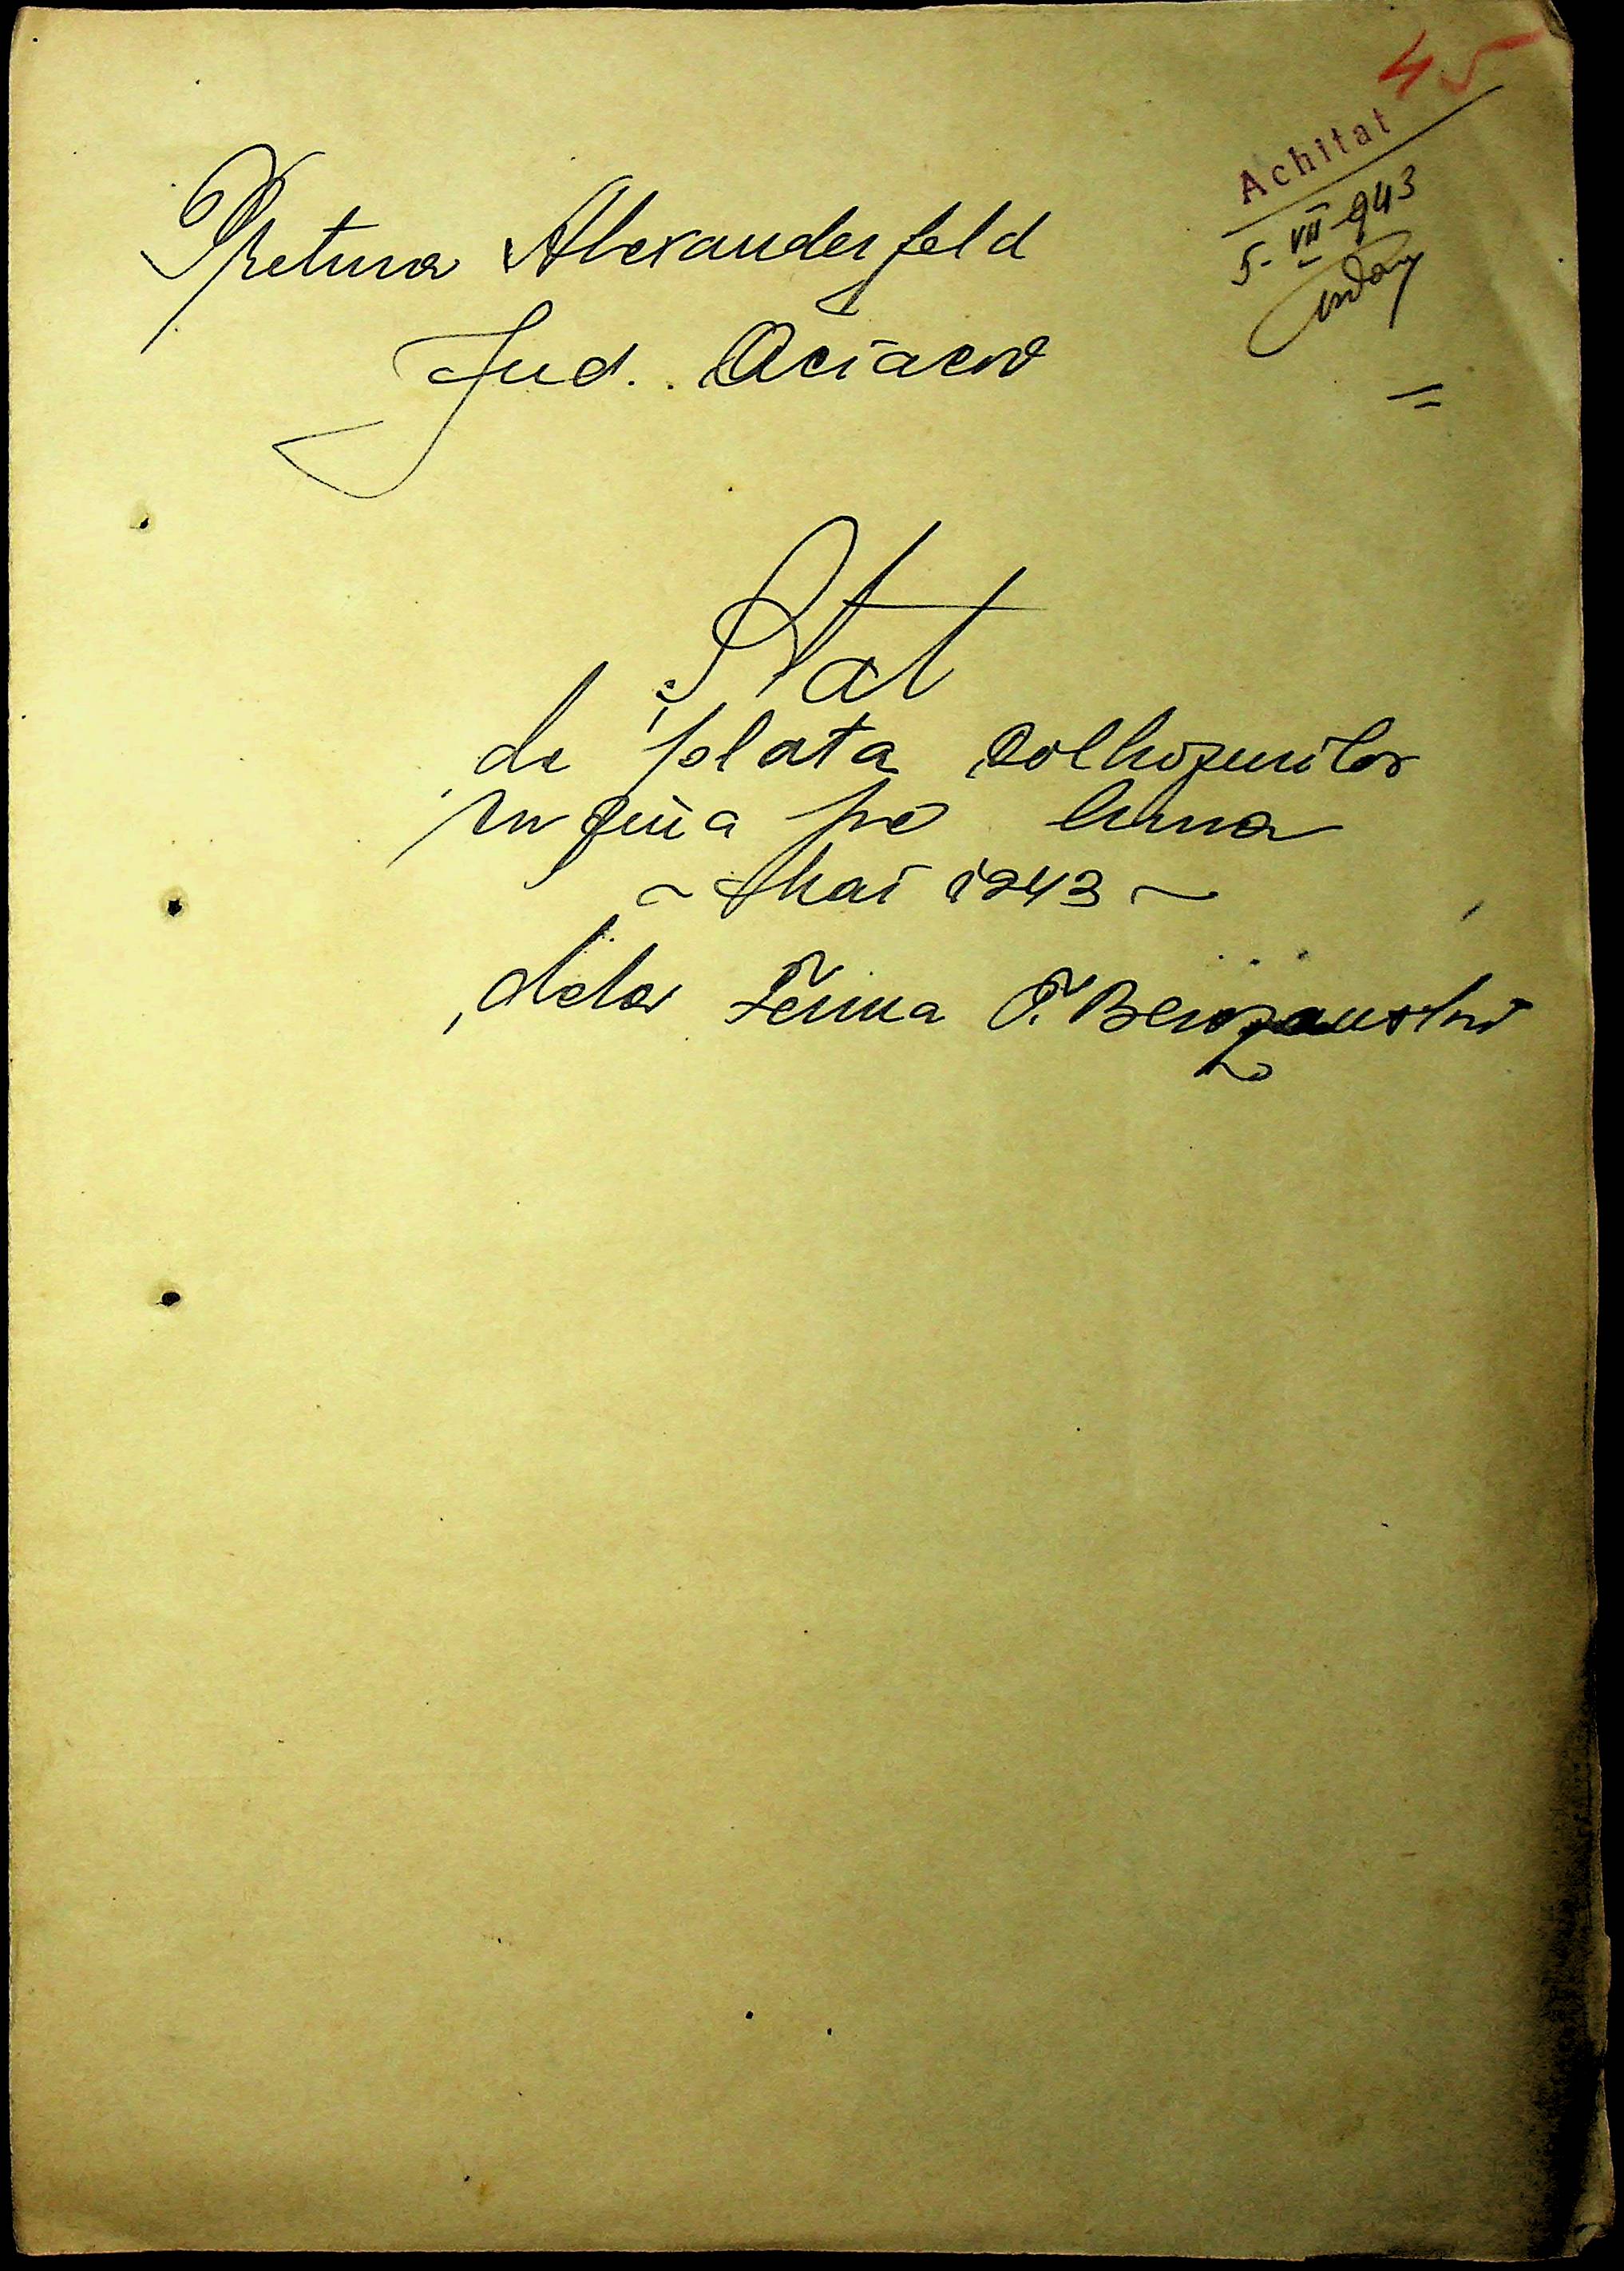 45
Achitat
5-VII-943
Pretura Alexanderfeld
Jud. Oceacov
Stat
de plata Colhozurilor
pe luna
Mai 1943
dela Ferma F. Berezanskii